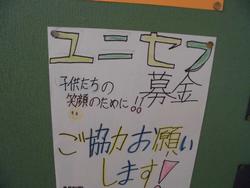 ユニセフ
子供たちの
笑顔のために!! 募金
ご協力お願い
します!